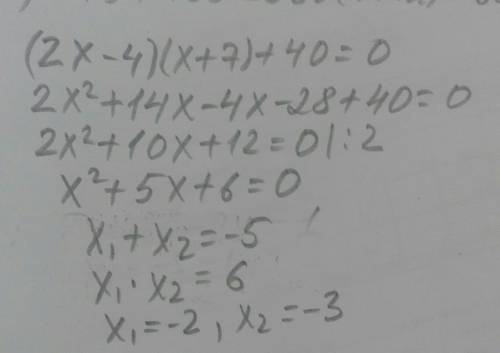 (2x-4)(x+7)+40=0
2x²+14x-4x-28+40=0
2x²+10x+12=0|:2
x²+5x+6=0
x₁+x₂=-5
x₁·x₂=6
x₁=-2, x₂=-3